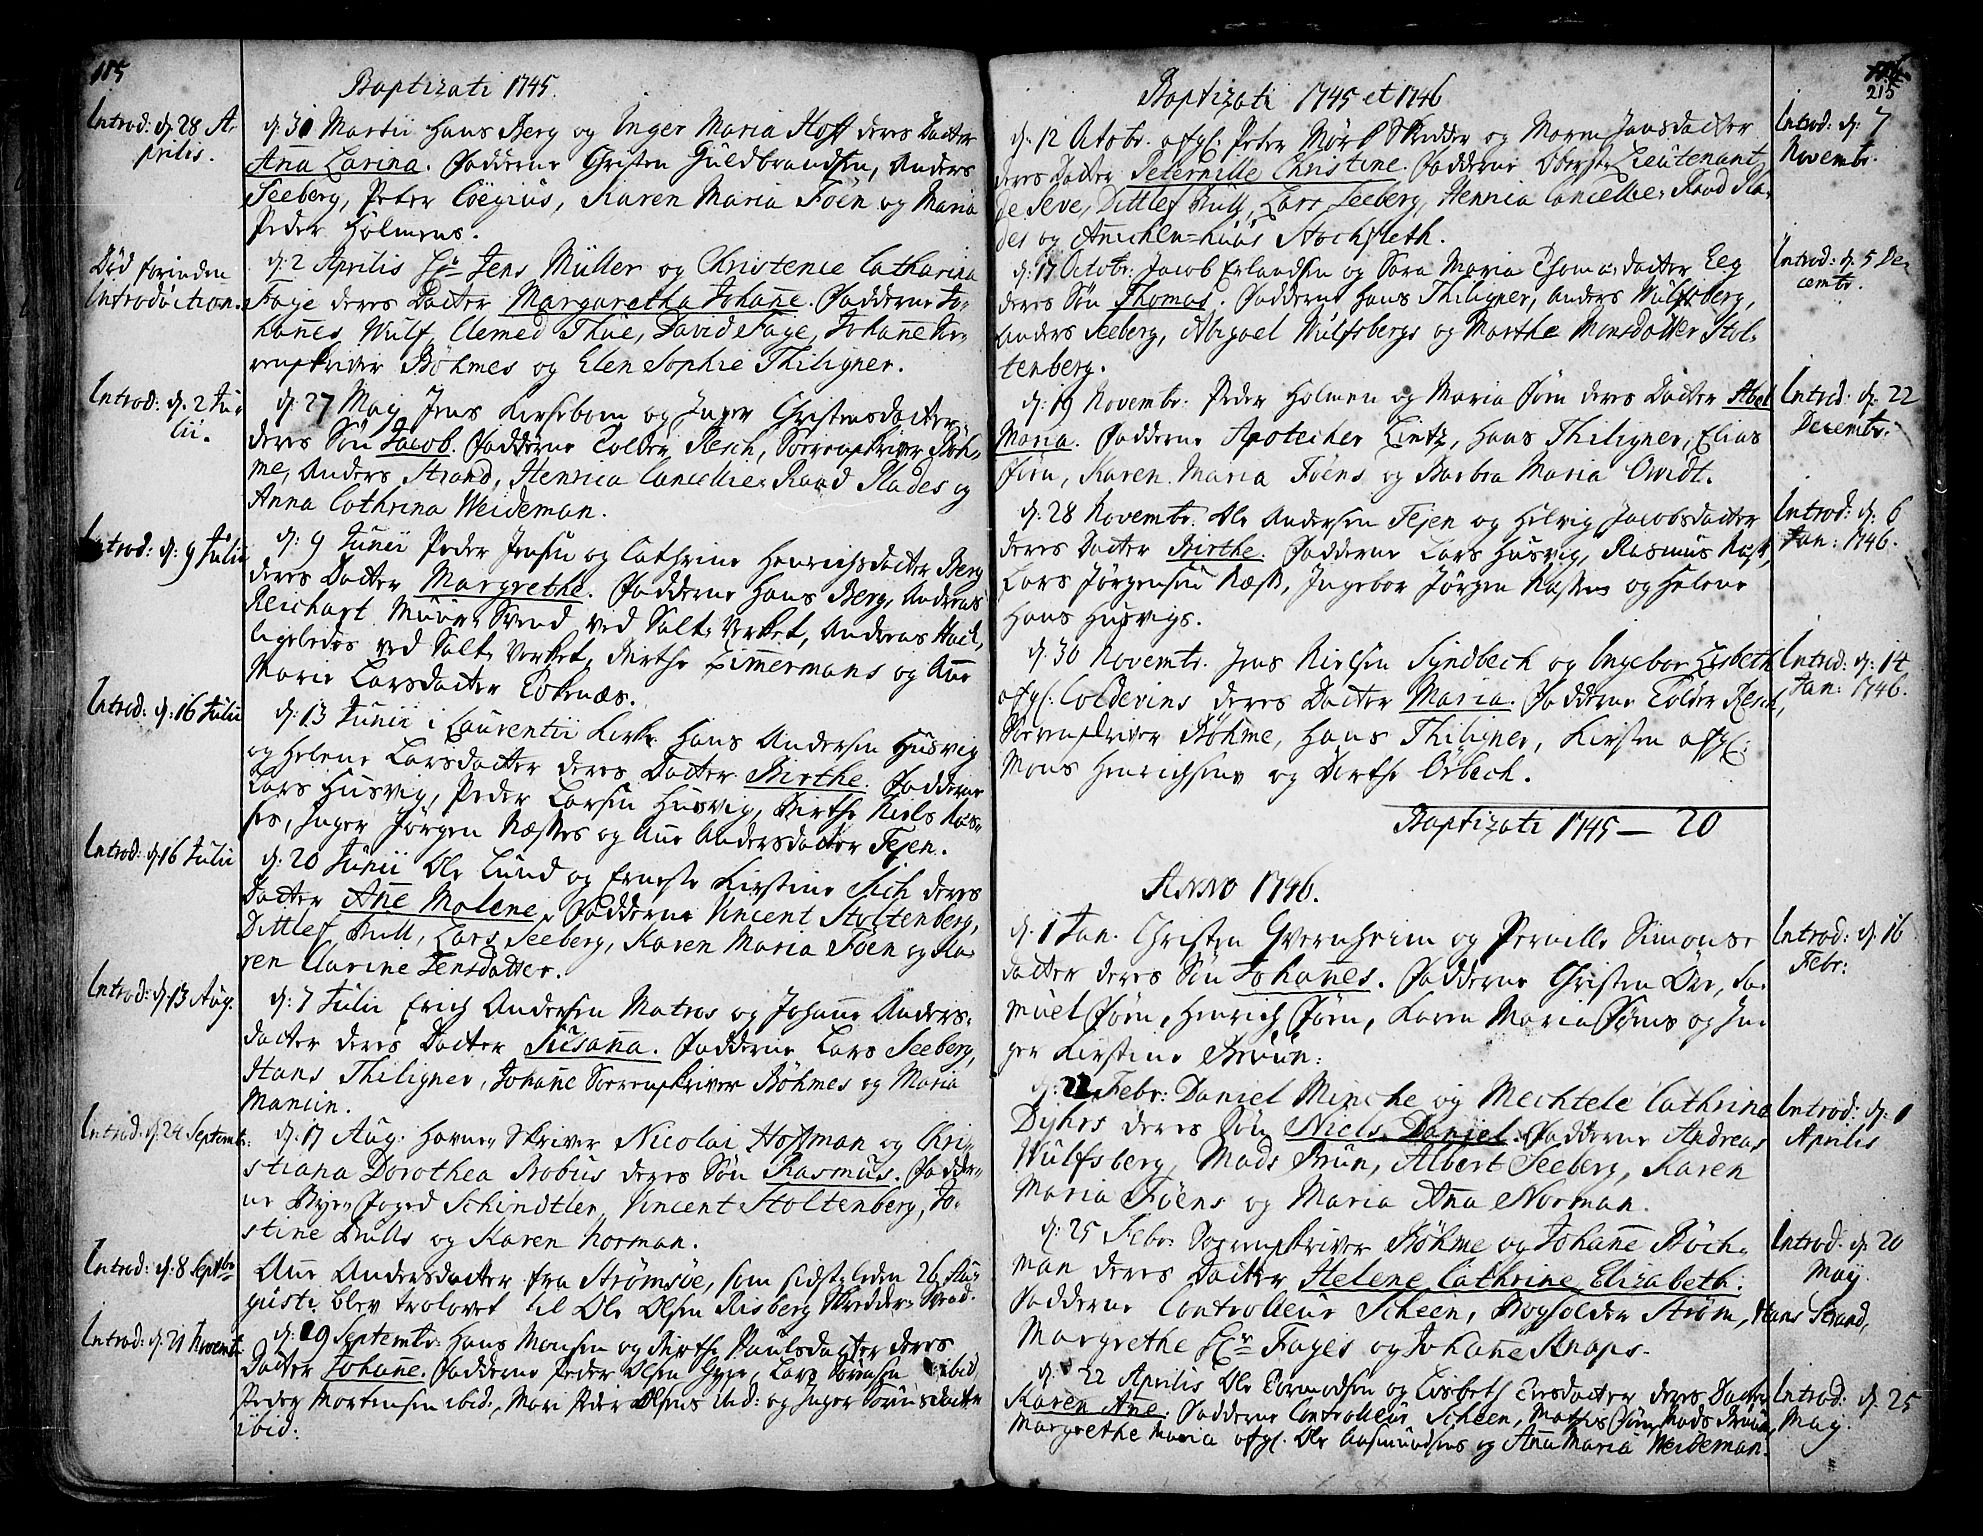 185
Baptizati 1745.
Introd: d. 28 A-
prilis.
d. 31 Martii Hans Berg og Inger Maria Hoff deres Datter
Anna Larina. Fadderne Christen Guldbrandsen, Anders
Seeberg, Peter Cöegius, Karen Maria Föen og Maria
Peder Holmens.
Död forinden
Introduction.
d. 2 Aprilis Hr Jens Müller og Christence Catharina
Faye deres Datter Margaretha Johanne. Fadderne Jo-
hannes Wulf, Clemed Thue, David Faye, Johanne So-
renskriver Böhmes og Elen Sophie Thiligner.
Introd: d. 2 Ju-
lii.
d: 27 Maij Jens Kirseboem og Inger Christensdatter
deres Sön Jacob. Fadderne Tolder Resch, Sorenskriver Böh-
me, Anders Strand, Henrica Cancellie-Raad Blades og
Anna Cathrina Weideman.
Introd: d: 9 Julii
d: 9 Junii Peder Jensen og Cathrine Henrichsdatter Berg
deres Datter Margrethe. Fadderne Hans Berg, Andreas
Reichart Muur-Svend ved Salt-Verket, Andreas Hack,
ligeledes ved Salt-Verket, Birthe Zimmermans og Ane
Marie Larsdatter Eokenæs.
Introd: d: 16 Julii
d: 13 Junii i Laurentii Kirke Hans Andersen Husvig
og Helene Larsdatter deres Datter Birthe. Fadderne
Lars Husvig, Peder Larsen Husvig, Birthe Niels Ras-
ses, Inger Jörgen Næsses og Ane Andersdatter Fejen.
Introd: d 16 Julii
d: 20 Junii Ole Lund og Erneste Kirstine Sich deres
Datter Ane Malene. Fadderne Vincent Stoltenberg,
Dittlef Bull, Lars Seeberg, Karen Maria Föen og Ka-
ren Clarine Jensdatter.
Introd: d 13 Aug.
d: 7 Julii Erich Andersen Matros og Johanne Anders-
datter deres Datter Susanna. Fadderne Lars Seeberg,
Hans Thiligner, Johanne Sorenskriver Böhmes og Maria
Mancin.
Introd: d. 24 Septemb:
d: 17 Aug: Havne-Skriver Nicolai Hoffman og Chri-
stiana Dorothea Bobus deres Sön Rasmus. Fadder-
ne Bye-Foged Schindtler, Vincent Stoltenberg, Ju-
stine Bulls og Karen Norman.
Introd: d: 8 Septbr
Ane Andersdatter fra Strömsöe, som sidstleden 26 Au-
gusti blev trolovet til Ole Olsen Risberg Skredder-Svend.
Introd: d. 21 Novemb.
d: 19 Septembr: Hans Monsen og Birthe Paulsdatter deres
Datter Johane. Fadderne Peder Olsen Gype, Lars Sörensen ibid,
Peder Mortensen ibid:, Mari Peder Olsens ibid: og Inger Sörensdatter
ibid:
215
Baptizati 1745 et 1746
Introd: d: 7
Novembr.
d: 12 Octobr. afgl: Peter Mörch Skredder og Maren Jansdatter
deres Datter Peternille Christine. Fadderne Oberst-Lieutenant
de Seve, Dittlef Bull, Lars Seeberg, Henrica Cancellie-Raad Bla-
des og Anichen-huus Stochfleth.
Introd: d. 5 De-
cembr.
d: 17 Octobr: Jacob Erlandsen og Sara Maria Thomasdatter Eeg
deres Sön Thomas. Fadderne Hans Thiligner, Anders Wulfsberg,
Anders Seeberg, Abigael Wulfsbergs og Marthe Monsdatter Stol-
tenberg.
Introd: d. 22
Decembr.
d: 19 Novembr: Peder Holmen og Maria Förn deres Datter Abel
Maria. Fadderne Apotecher Lintz, Hans Thiligner, Elias
Förn, Karen Maria Föens og Barbra Maria Qvidt.
Introd: d: 6
Jan: 1746.
d: 28 Novembr. Ole Andersen Fejen og Helvig Jacobsdatter
deres Datter Birthe. Fadderne Lars Husvig, Rasmus Næss,
Lars Jörgensen Næss, Ingebor Jörgen Næsses og Helene
Hans Husvigs.
Introd: d: 14
Jan: 1746.
d. 30 Novembr. Jens Nielsen Syndbech og Ingebor Lisbeth
afgl: Coldevins deres Datter Maria. Fadderne Tolder Resch,
Sorenskriver Böhme, Hans Thiligner, Kirsten afgl:
Mons Henrichsens og Dorthe Orbech.
Baptizati 1745 — 20
Anno 1746.
Introd: d. 16
Febr:
d. 1 Jan. Christen Qvernheim og Pernille Simons-
datter deres Sön Johannes. Fadderne Christen Öee, Sa-
muel Förn, Henrich Förn, Karen Maria Förns og In-
ger Kirstine Bruun.
Introd: d: 1
Aprilis
d: 22 Febr: Daniel Minche og Mechtele Cathrina
Dyhrs deres Sön Niels Daniel. Fadderne Andreas
Wulfsberg, Mads Brun, Albert Seeberg, Karen
Maria Föens og Maria Ana Norman.
Introd: d. 20
Maij.
d. 25 Febr: Sorenskriver Böhme og Johanne Böch-
man deres Datter Helene Cathrine Elizabeth.
Fadderne Controlleur Scheen, Bogholder Ström, Hans Strand,
Margrethe Hr Fayes og Johanne Knaps.
Introd: d. 25
Maij.
d. 22 Aprilis Ole Tormodsen og Lisbeth Iversdatter deres Datter
Karen Ane. Fadderne Controlleur Scheen, Mathis Förn, Mads Bruun,
Margrethe Maria afgl. Ole Aasmundsens og Ana Maria Weideman.